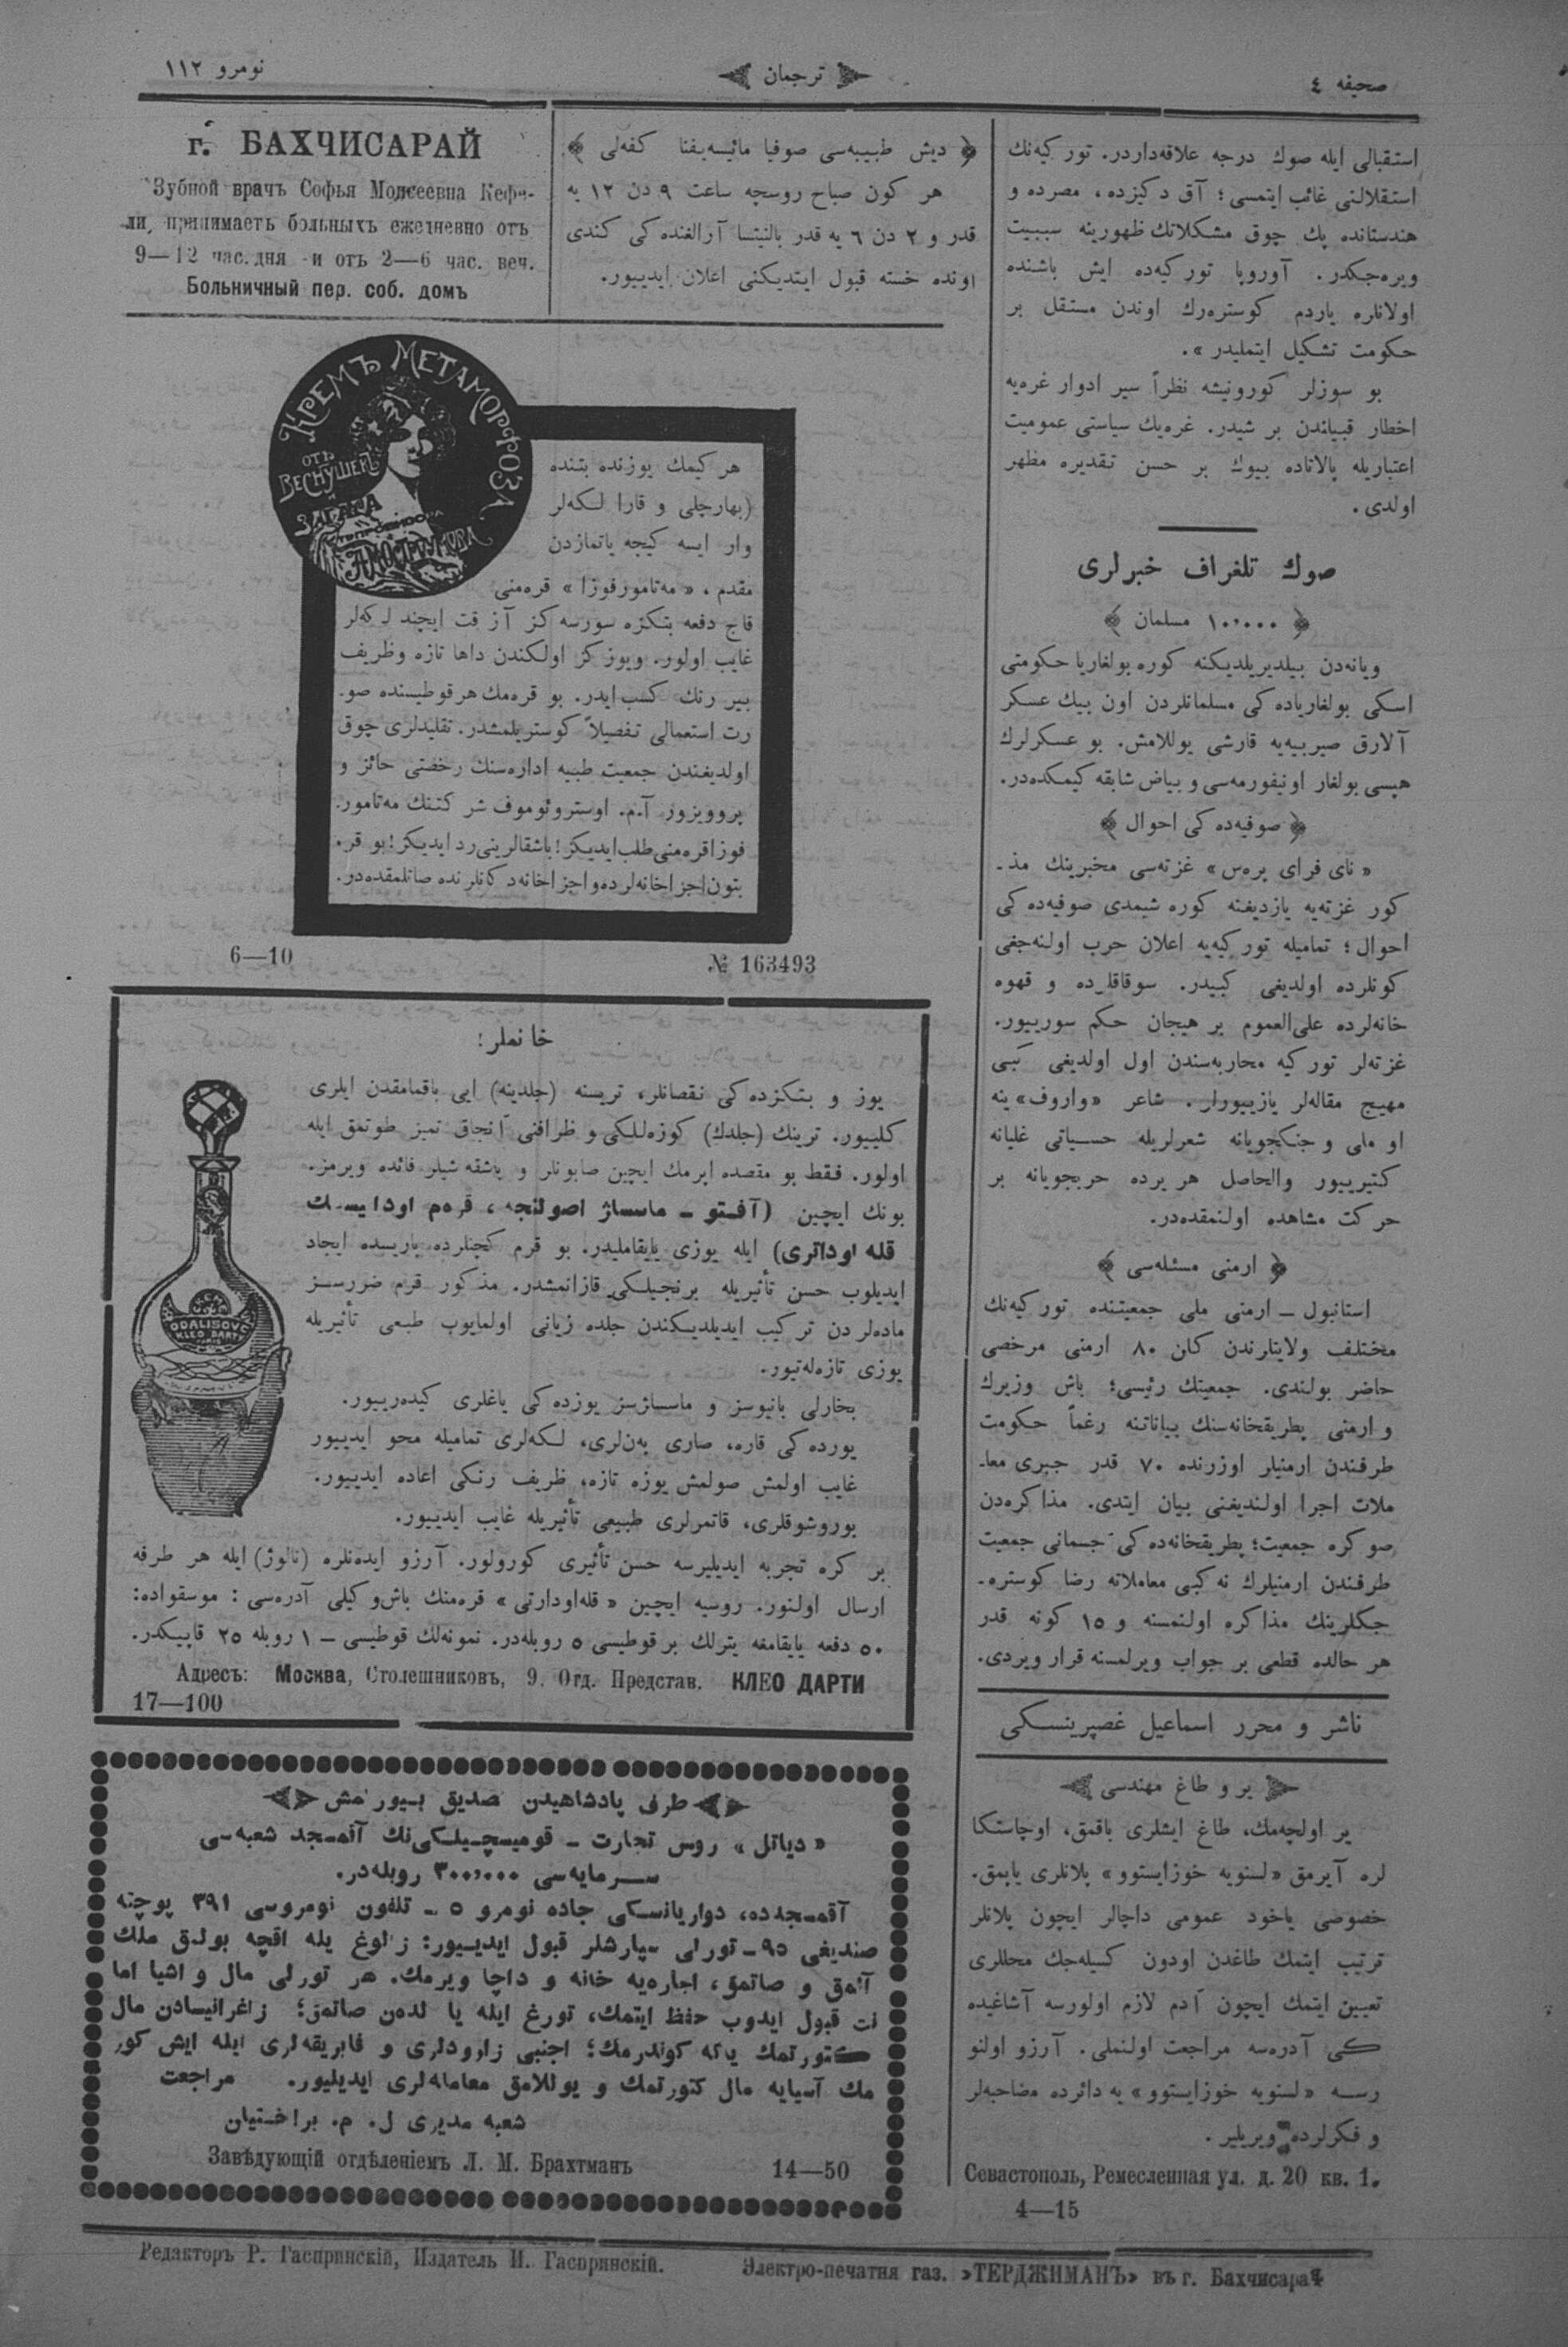 صحیفه ٤
ترجمان
نومرو ١١٢
استقبالی ایله صوڭ درجه علاقه‌داردر. تورکیه‌نڭ
استقلالنی غائب ایتمسی؛ آق دڭیزده، مصرده و
هندستانده پك چوق مشکلاتڭ ظهورینه سببیت
ویره‌جکدر. آوروپا تورکیه‌ده ایش باشنده
اولانلره یاردم کوستره‌رك اوندن مستقل بر
حکومت تشکیل ایتملیدر».
بو سوزلر کورونیشه نظراً سیر ادوار غره‌یه
اخطار قبیلندن بر شیدر. غره‌یك سیاستی عمومیت
اعتباریله پالاتاده بیوك بر حسن تقدیره مظهر
اولدی.
صوڭ تلغراف خبرلری
﴿ ١٠٬٠٠٠ مسلمان ﴾
ویانه‌دن بیلدیریلدیکنه کوره بولغاریا حکومتی
اسکی بولغاریاده کی مسلمانلردن اون بیڭ عسکر
آلارق صیربیه‌یه قارشی یوللامش. بو عسکرلرڭ
هپسی بولغار اونیفورمه‌سی و بیاض شابقه کیمکده‌در.
﴿ صوفیه‌ده کی احوال ﴾
«نای فرای پره‌س» غزته‌سی مخبرینڭ مذ ـ
کور غزته‌یه یازدیغنه کوره شیمدی صوفیه‌ده کی
احوال؛ تمامیله تورکیه‌یه اعلان حرب اولنه‌جغی
کونلرده اولدیغی کبیدر. سوقاقلرده و قهوه
خانه‌لرده علی‌العموم بر هیجان حکم سوریيور.
غزته‌لر تورکیه محاربه‌سندن اول اولدیغی کبی
مهیج مقاله‌لر یازیيورلر. شاعر «واروف» ینه
او ملی و جنکجویانه شعرلریله حسیاتی غلیانه
کتیریيور والحاصل هر یرده حربجویانه بر
حرکت مشاهده اولنمقده‌در.
﴿ ارمنی مسئله‌سی ﴾
استانبول ـ ارمنی ملی جمعیتنده تورکیه‌نڭ
مختلف ولایتلرندن کلن ٨٠ ارمنی مرخصی
حاضر بولندی. جمعیتڭ رئیسی؛ باش وزیرڭ
و ارمنی پطریقخانه‌سنڭ بیاناتنه رغماً حکومت
طرفندن ارمنیلر اوزرنده ٧٠ قدر جبری معا۔
ملات اجرا اولندیغنی بیان ایتدی. مذاکره‌دن
صوڭره جمعیت؛ پطریقخانه‌ده کی جسمانی جمعیت
طرفندن ارمنیلرڭ نه کبی معاملاته رضا کوستره۔
جکلرینڭ مذاکره اولنمسنه و ١٥ کونه قدر
هر حالده قطعی بر جواب ویرلمسنه قرار ویردی.
ناشر و محرر اسماعیل غصپرینسکی
یر و طاغ مهندسی
یر اولچه‌مك، طاغ ایشلری باقمق، اوچاستکا
لره آیرمق «لسنویه خوزایستوو» پلانلری یاپمق.
خصوصی یاخود عمومی داچالر ایچون پلانلر
ترتیب ایتمك طاغدن اودون کسیله‌جك محللری
تعیین ایتمك ایچون آدم لازم اولورسه آشاغیده
کی آدرسه مراجعت اولنملی. آرزو اولنو
رسه «لسنویه خوزایستوو» یه دائرده مضاحبه‌لر
و فکرلرده ویریلیر.
Севастополь, Ремесленная ул. д. 20 кв. 1.
4—15
﴿ دیش طبیبه‌سی صوفیا مائیسه‌یفنا کفه‌لی ﴾
هر کون صباح روسچه ساعت ٩ دن ١٢ یه
قدر و ٢ دن ٦ یه قدر بالنیتسا آرالغنده کی کندی
اونده خسته قبول ایتدیکنی اعلان ایدییور.
г. БАХЧИСАРАЙ
Зубной врачъ Софья Моисеевна Кефе-
ли, принимаетъ больныхъ ежедневно отъ
9—12 час. дня и отъ 2—6 час. веч.
Больничный пер. соб. домъ
КРЕМЪ МЕТАМОРФОЗА
ОТЪ
ВЕСНУШЕКЪ
ЗАГАРА
هر کیمڭ یوزنده بتنده
(بهارچلی و قارا لکه‌لر
وار ایسه کیجه یاتمازدن
مقدم، «مه‌تامورفوزا» قره‌منی
قاچ دفعه بتڭزه سورسه‌ڭز آز وقت ایچند لکه‌لر
غایب اولور. ویوزڭز اولکندن داها تازه وظریف
بیر رنك کسب ایدر. بو قره‌مڭ هر قوطیسنده صو۔
رت استعمالی تفصیلاً کوستریلمشدر. تقلیدلری چوق
اولدیغندن جمعیت طبیه اداره‌سنڭ رخصتی حائز و
پروویزور آ.م. اوستروئوموف شرکتنڭ مه‌تامور۔
فوزا قره‌منی طلب ایدیڭز! باشقالرینی رد ایدیڭز! بو قر۔
بتون اجزاخانه‌لرده و اجزاخانه‌دکانلرنده صاتلمقده‌در.
6—10
№ 163493
خانملر!
یوز و بتڭزده کی نقصانلر، تریسنه (جلدینه) ایی باقمامقدن ایلری
کلییور. ترینڭ (جلدڭ) کوزه‌للکی و ظرافتی آنجاق تمیز طوتمق ایله
اولور. فقط بو مقصده ایرمك ایچین صابونلر و باشقه شیلر فائده ویرمز.
بونڭ ایچین (آفتو ـ ماسساژ اصولنجه، قره‌م اودالیسك
قله اودارتی) ایله یوزی یایقاملیدر. بو قرم کچنلرده پاریسده ایجاد
ایدیلوب حسن تأثیریله برنجیلکی قازانمشدر. مذکور قرم ضررسز
ماده‌لردن ترکیب ایدیلدیکندن جلده زیانی اولمایوب طبعی تأثیریله
یوزی تازه‌له‌تیور.
بخارلی بانیوسز و ماسساژسز یوزده کی یاغلری کیده‌رییور.
یورده کی قاره، صاری به‌ن‌لری، لکه‌لری تمامیله محو ایدییور
غایب اولمش صولمش یوزه تازه، ظریف رنکی اعاده ایدییور.
بوروشوقلری، قاتمرلری طبیعی تأثیریله غایب ایدییور.
بر کره تجربه ایدیلیرسه حسن تأثیری کورولور. آرزو ایده‌نلره (نالوژ) ایله هر طرفه
ارسال اولنور. روسیه ایچین «قله‌اودارتی» قره‌منڭ باش‌وکیلی آدره‌سی: موسقواده:
٥٠ دفعه یایقامغه یترلك بر قوطیسی ٥ روبله‌در. نمونه‌لك قوطیسی ـ ١ روبله ٢٥ قاپیکدر.
Адресъ: Москва, Столешниковъ, 9. Отд. Представ. КЛЕО ДАРТИ
17—100
ODALISQUE
KLEO DARTI
طرف پادشاهیدن تصدیق بیورلمش
«دیاتل» روس تجارت ـ قومیسچیلکی‌نڭ آقمسجد شعبه‌سی
سرمایه‌سی ٣٠٠٬٠٠٠ روبله‌در.
آقمسجدده، دواریانسکی جاده نومرو ٥ ـ تلفون نومروسی ٣٩١ پوچته
صندیغی ٩٥ـ تورلی سپارشلر قبول ایدییور: زالوغ یله اقچه بولدق ملك
آلمق و صاتمق، اجاره‌یه خانه و داچا ویرمك. هر تورلی مال و اشیا اما
نت قبول ایدوب حفظ ایتمك، تورغ ایله یا لدەن صاتمق؛ زاغرانیسادن مال
کتورتمك یاکه کوندرمك؛ اجنبی زاوودلری و فابریقه‌لری ایله ایش کور
مك آسیایه مال کتورتمك و یوللامق معامله‌لری ایدیلیور. مراجعت
شعبه مدیری ل. م. براختیان
Завѣдующій отдѣленіемъ Л. М. Брахтманъ
14—50
Редакторъ Р. Гаспринскій, Издатель И. Гаспринскій.
Электро-печатня газ. »ТЕРДЖИМАНЪ» въ г. Бахчисараѣ